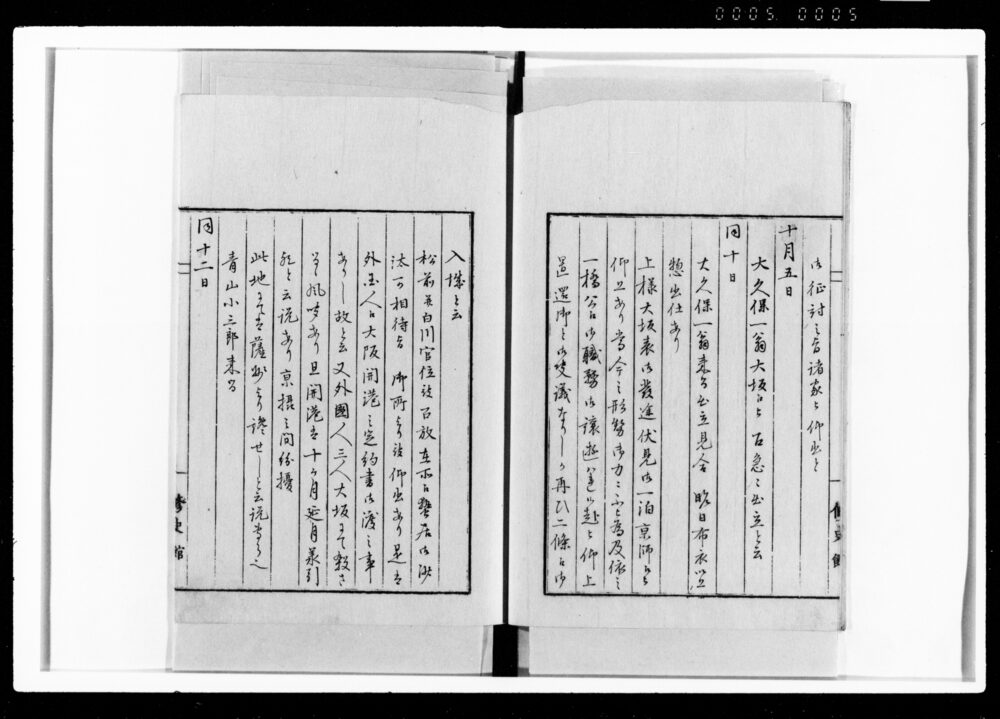 0005 0005
御征討之旨諸家江仰出と
十月五日
大久保一翁大坂江被召急ニ出立と云
同十日
大久保一翁来る出立見合 昨日布衣以上
惣出仕あり
上様大坂表御発途伏見御一泊京師江
仰上あり当今之形勢御力ニ不被為及依之
一橋公江御職務御譲遊 仰上
還御と御決議なりしか再ひ二條江御
入城と云
松前並白川官位被召放在所江蟄居御沙
汰可相待旨 御所より被仰出あり是は
外国人江大阪開港之定約書御渡之事
ありし故と云又外国人三人大坂にて殺さ
風吹あり且開港は十ヶ月延月
と云説あり京摂之間紛擾
此地にては薩州より讒せしと云説
青山小三郎来る
同十二日
修史館
修史館